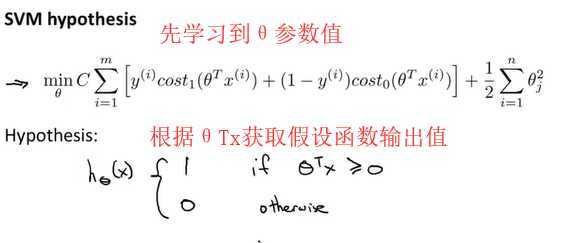 SVM hypothesis
先学习到 θ 参数值
→ min_θ C ∑_{i=1}^{m} [y^{(i)}cost_1(θ^T x^{(i)}) + (1 − y^{(i)})cost_0(θ^T x^{(i)})] + 1/2 ∑_{i=1}^{n} θ_j^2
Hypothesis:
根据 θ Tx获取假设函数输出值
h_θ(x) { 1 if θ^T x ≥ 0
0 otherwise